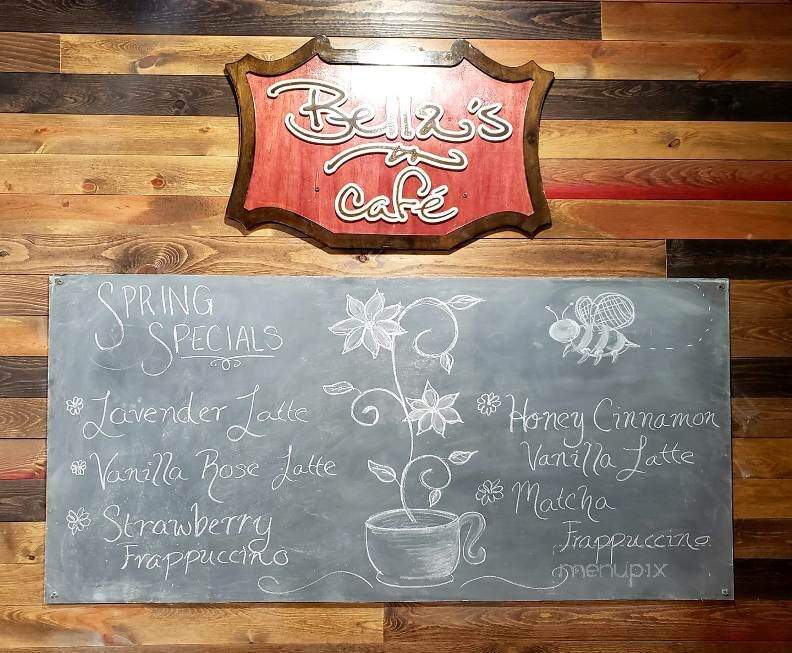 Bella's
café
SPRING
SPECIALS
Lavender Latte
Vanilla Rose Latte
Strawberry
Frappuccino
Honey Cinnamon
Vanilla Latte
Matcha
Frappuccino
menupix